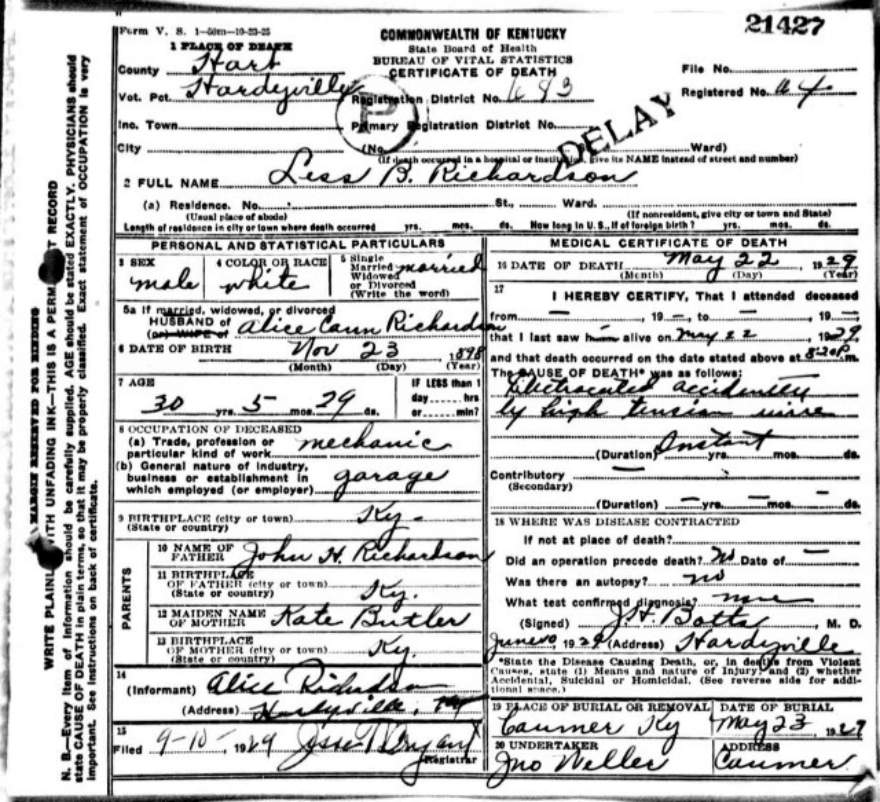 21427
Form V. S. 1-50m-10-23-25
COMMONWEALTH OF KENTUCKY
State Board of Health
BUREAU OF VITAL STATISTICS
CERTIFICATE OF DEATH
1 PLACE OF DEATH
County Hart
Vot. Pct. Hardyville
Inc. Town
City
Registration District No. 683
Primary Registration District No.
(No. St., Ward)
(If death occurred in a hospital or institution, give its NAME instead of street and number)
File No.
Registered No. 64
P
DELAY
2 FULL NAME Less B. Richardson
(a) Residence. No. St., Ward.
(Usual place of abode) (If nonresident, give city or town and State)
Length of residence in city or town where death occurred yrs. mos. ds. How long in U. S., if of foreign birth? yrs. mos. ds.
PERSONAL AND STATISTICAL PARTICULARS
3 SEX male
4 COLOR OR RACE white
5 Single Married Widowed or Divorced (Write the word) married
5a If married, widowed, or divorced
HUSBAND of
(or) WIFE of Alice Cann Richardson
6 DATE OF BIRTH Nov 23, 1898
(Month) (Day) (Year)
7 AGE 30 yrs. 5 mos. 29 ds.
IF LESS than 1 day......hrs or......min?
8 OCCUPATION OF DECEASED
(a) Trade, profession or particular kind of work mechanic
(b) General nature of industry, business or establishment in which employed (or employer) garage
9 BIRTHPLACE (city or town) Ky-
(State or country)
PARENTS
10 NAME OF FATHER John H. Richardson
11 BIRTHPLACE OF FATHER (city or town) Ky.
(State or country)
12 MAIDEN NAME OF MOTHER Kate Butler
13 BIRTHPLACE OF MOTHER (city or town) Ky.
(State or country)
14
(Informant) Alice Richardson
(Address) Hardyville, Ky
15
Filed 9-10-, 1929 Jesse T Bryant
Registrar
MEDICAL CERTIFICATE OF DEATH
16 DATE OF DEATH May 22, 1929
(Month) (Day) (Year)
17 I HEREBY CERTIFY, That I attended deceased
from —, 19 —, to —, 19 —,
that I last saw him alive on May 22, 1929,
and that death occurred on the date stated above at 8:20 P.m.
The CAUSE OF DEATH* was as follows:
Electrocuted accidently
by high tension wire
(Duration) Instant yrs. mos. ds.
Contributory —
(Secondary)
(Duration) — yrs. — mos. — ds.
18 WHERE WAS DISEASE CONTRACTED
If not at place of death?
Did an operation precede death? No Date of —
Was there an autopsy? no
What test confirmed diagnosis? none
(Signed) J.H. Botts, M. D.
June 10, 1929 (Address) Hardyville
*State the Disease Causing Death, or, in deaths from Violent
Causes, state (1) Means and nature of Injury; and (2) whether
Accidental, Suicidal or Homicidal. (See reverse side for addi-
tional space.)
19 PLACE OF BURIAL OR REMOVAL Canmer Ky
DATE OF BURIAL May 23, 1929
20 UNDERTAKER Jno Weller
ADDRESS Canmer
MARGIN RESERVED FOR BINDING
WRITE PLAINLY WITH UNFADING INK—THIS IS A PERMANENT RECORD
N. B.—Every item of information should be carefully supplied. AGE should be stated EXACTLY. PHYSICIANS should
state CAUSE OF DEATH in plain terms, so that it may be properly classified. Exact statement of OCCUPATION is very
important. See instructions on back of certificate.